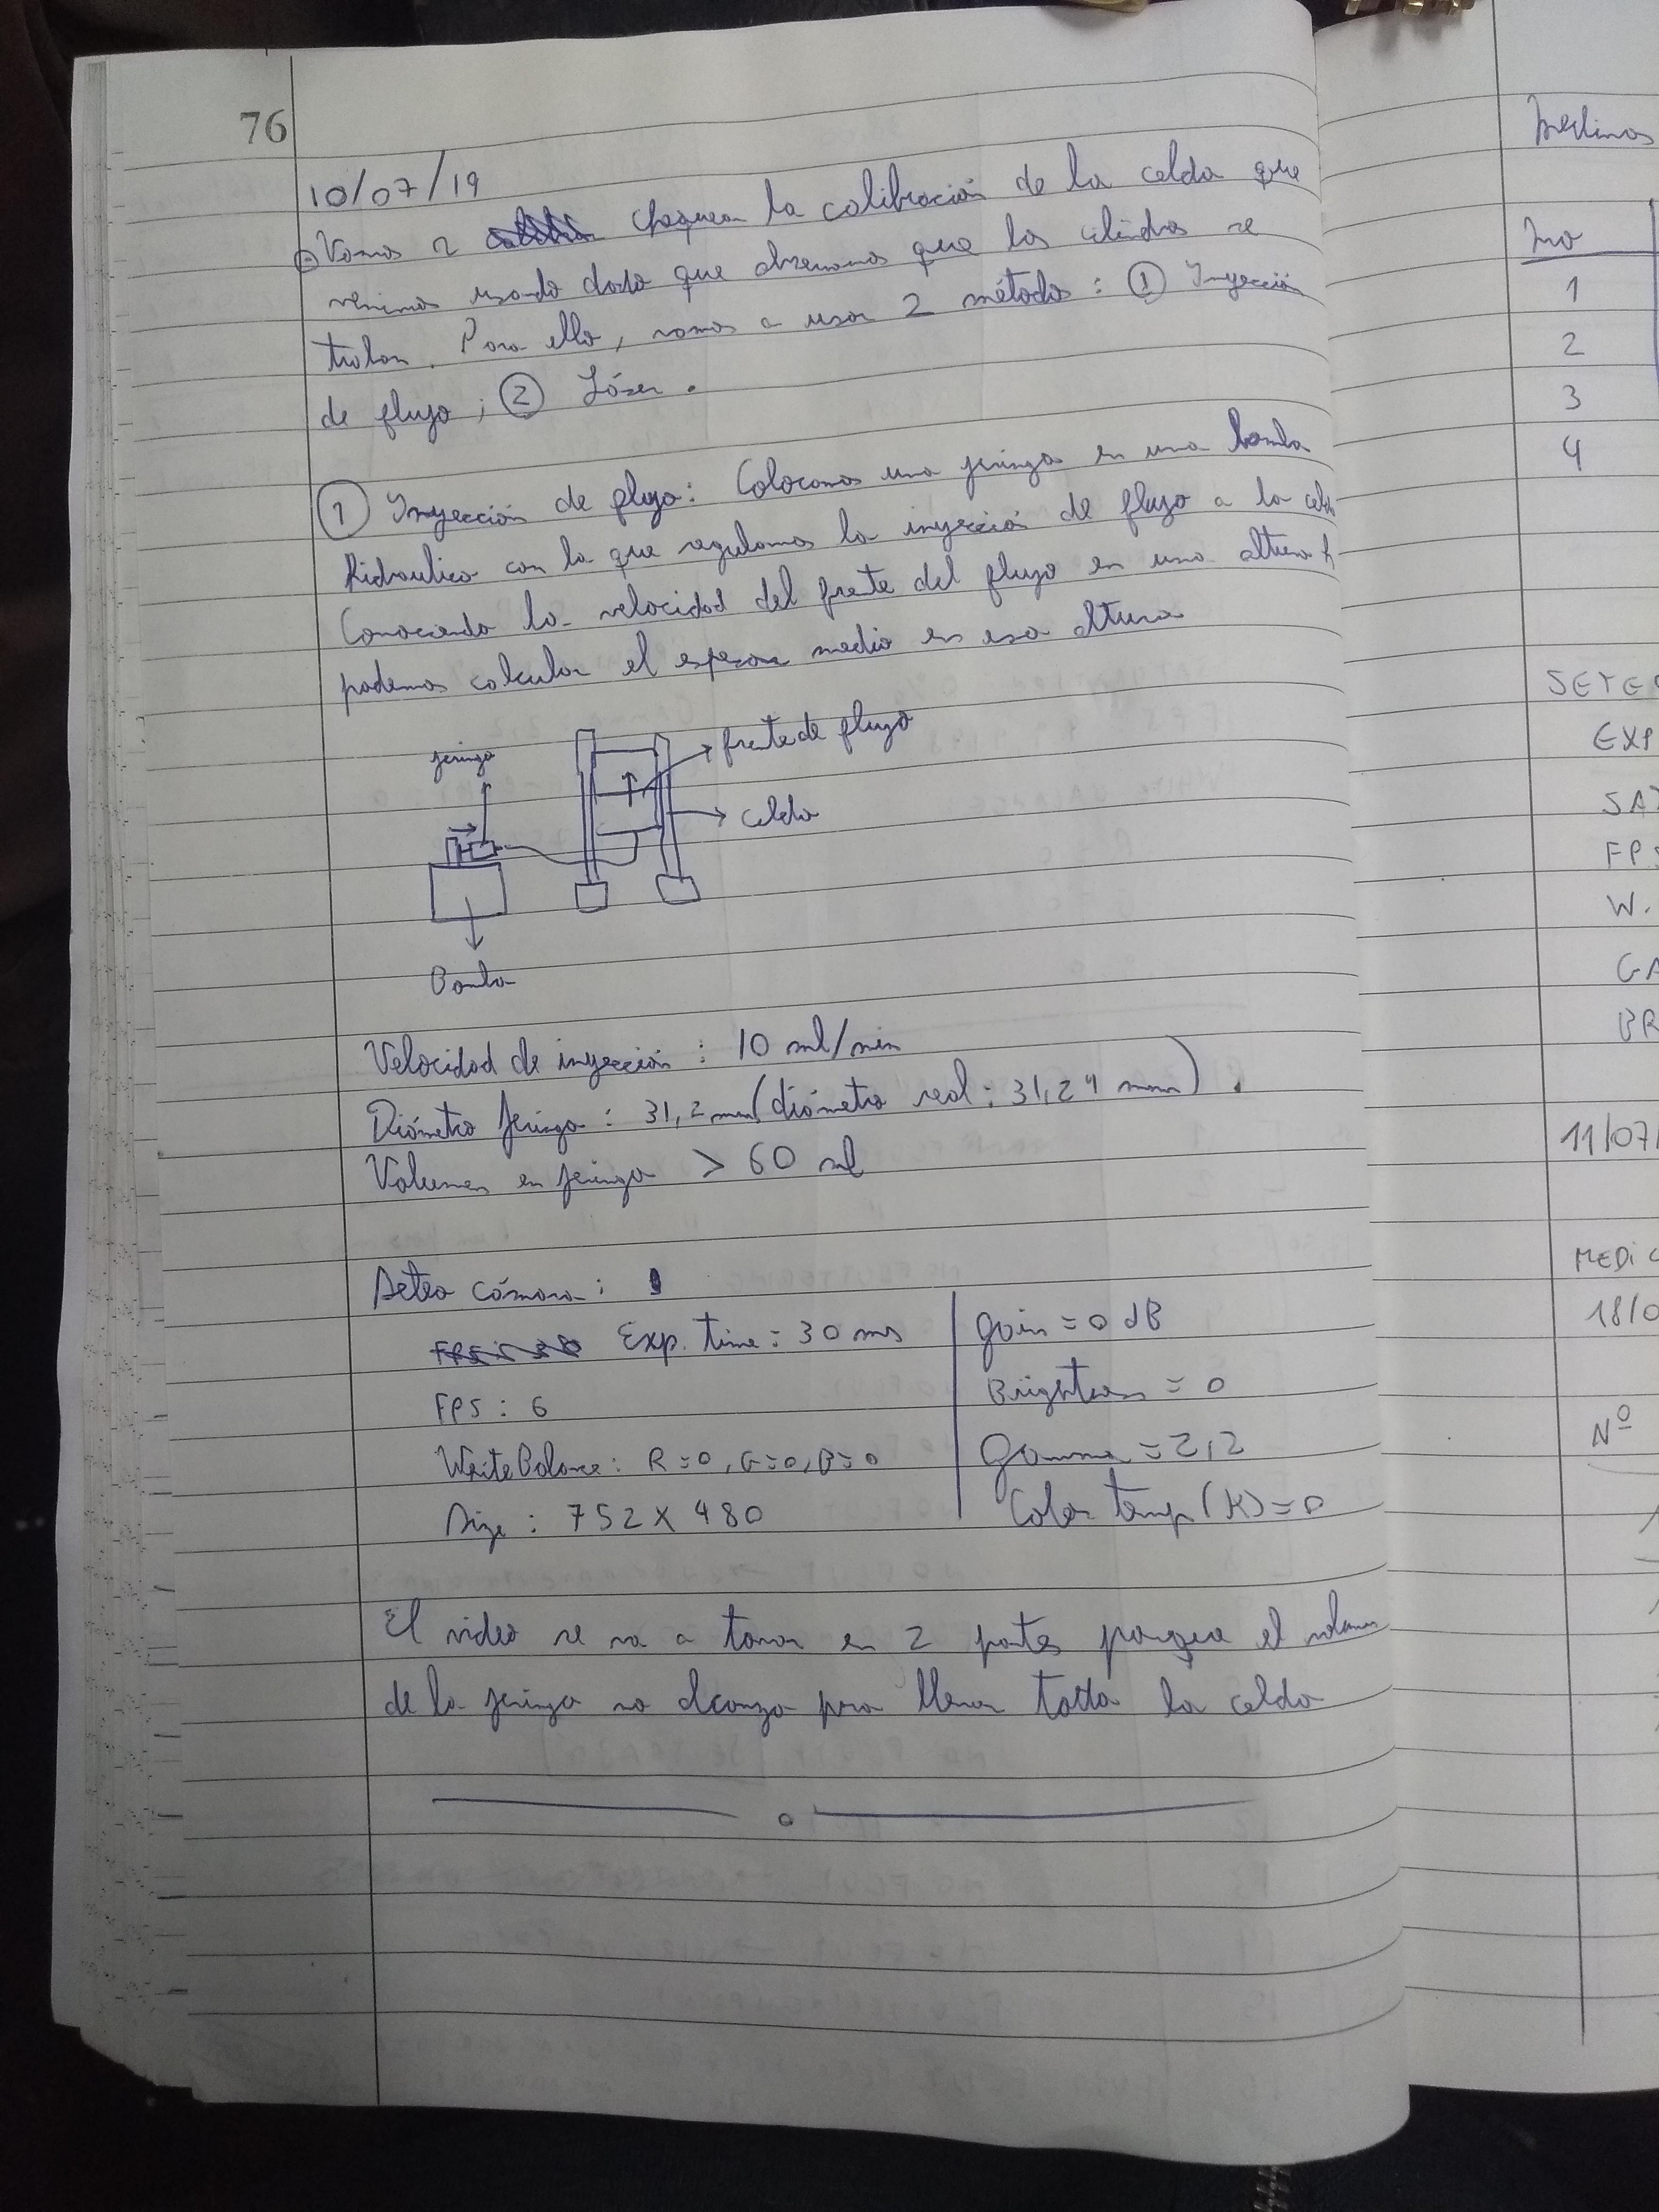 76
10/07/19
Vamos a chequear la calibración de la celda que
venimos usando dado que observamos que los cilindros se
traban. Para ello, vamos a usar 2 métodos: ① Inyección
de flujo; ② Láser.
① Inyección de flujo: Colocamos una jeringa en una bomba
hidraulica con la que regulamos la inyección de flujo a la celda
Conociendo la velocidad del frente del flujo en una altura h
podemos calcular el espesor medio en esa altura
jeringa
frente de flujo
celda
Bomba
Velocidad de inyección: 10 ml/min
Diámetro jeringa: 31,2 mm (diámetro real: 31,24 mm).
Volumen en jeringa > 60 ml
Seteo cámara:
Exp. time: 30 ms
FPS: 6
White Balance: R=0, G=0, B=0
Size: 752 x 480
gain = 0 dB
Brightness = 0
Gamma = 2,2
Color temp (K) = 0
El video se va a tomar en 2 partes porque el volumen
de la jeringa no alcanza para llenar toda la celda
1
2
3
4
SETEO
EXP
SAT
FPS
W.
GA
BR
11/07/
MEDIC
18/0
Nº